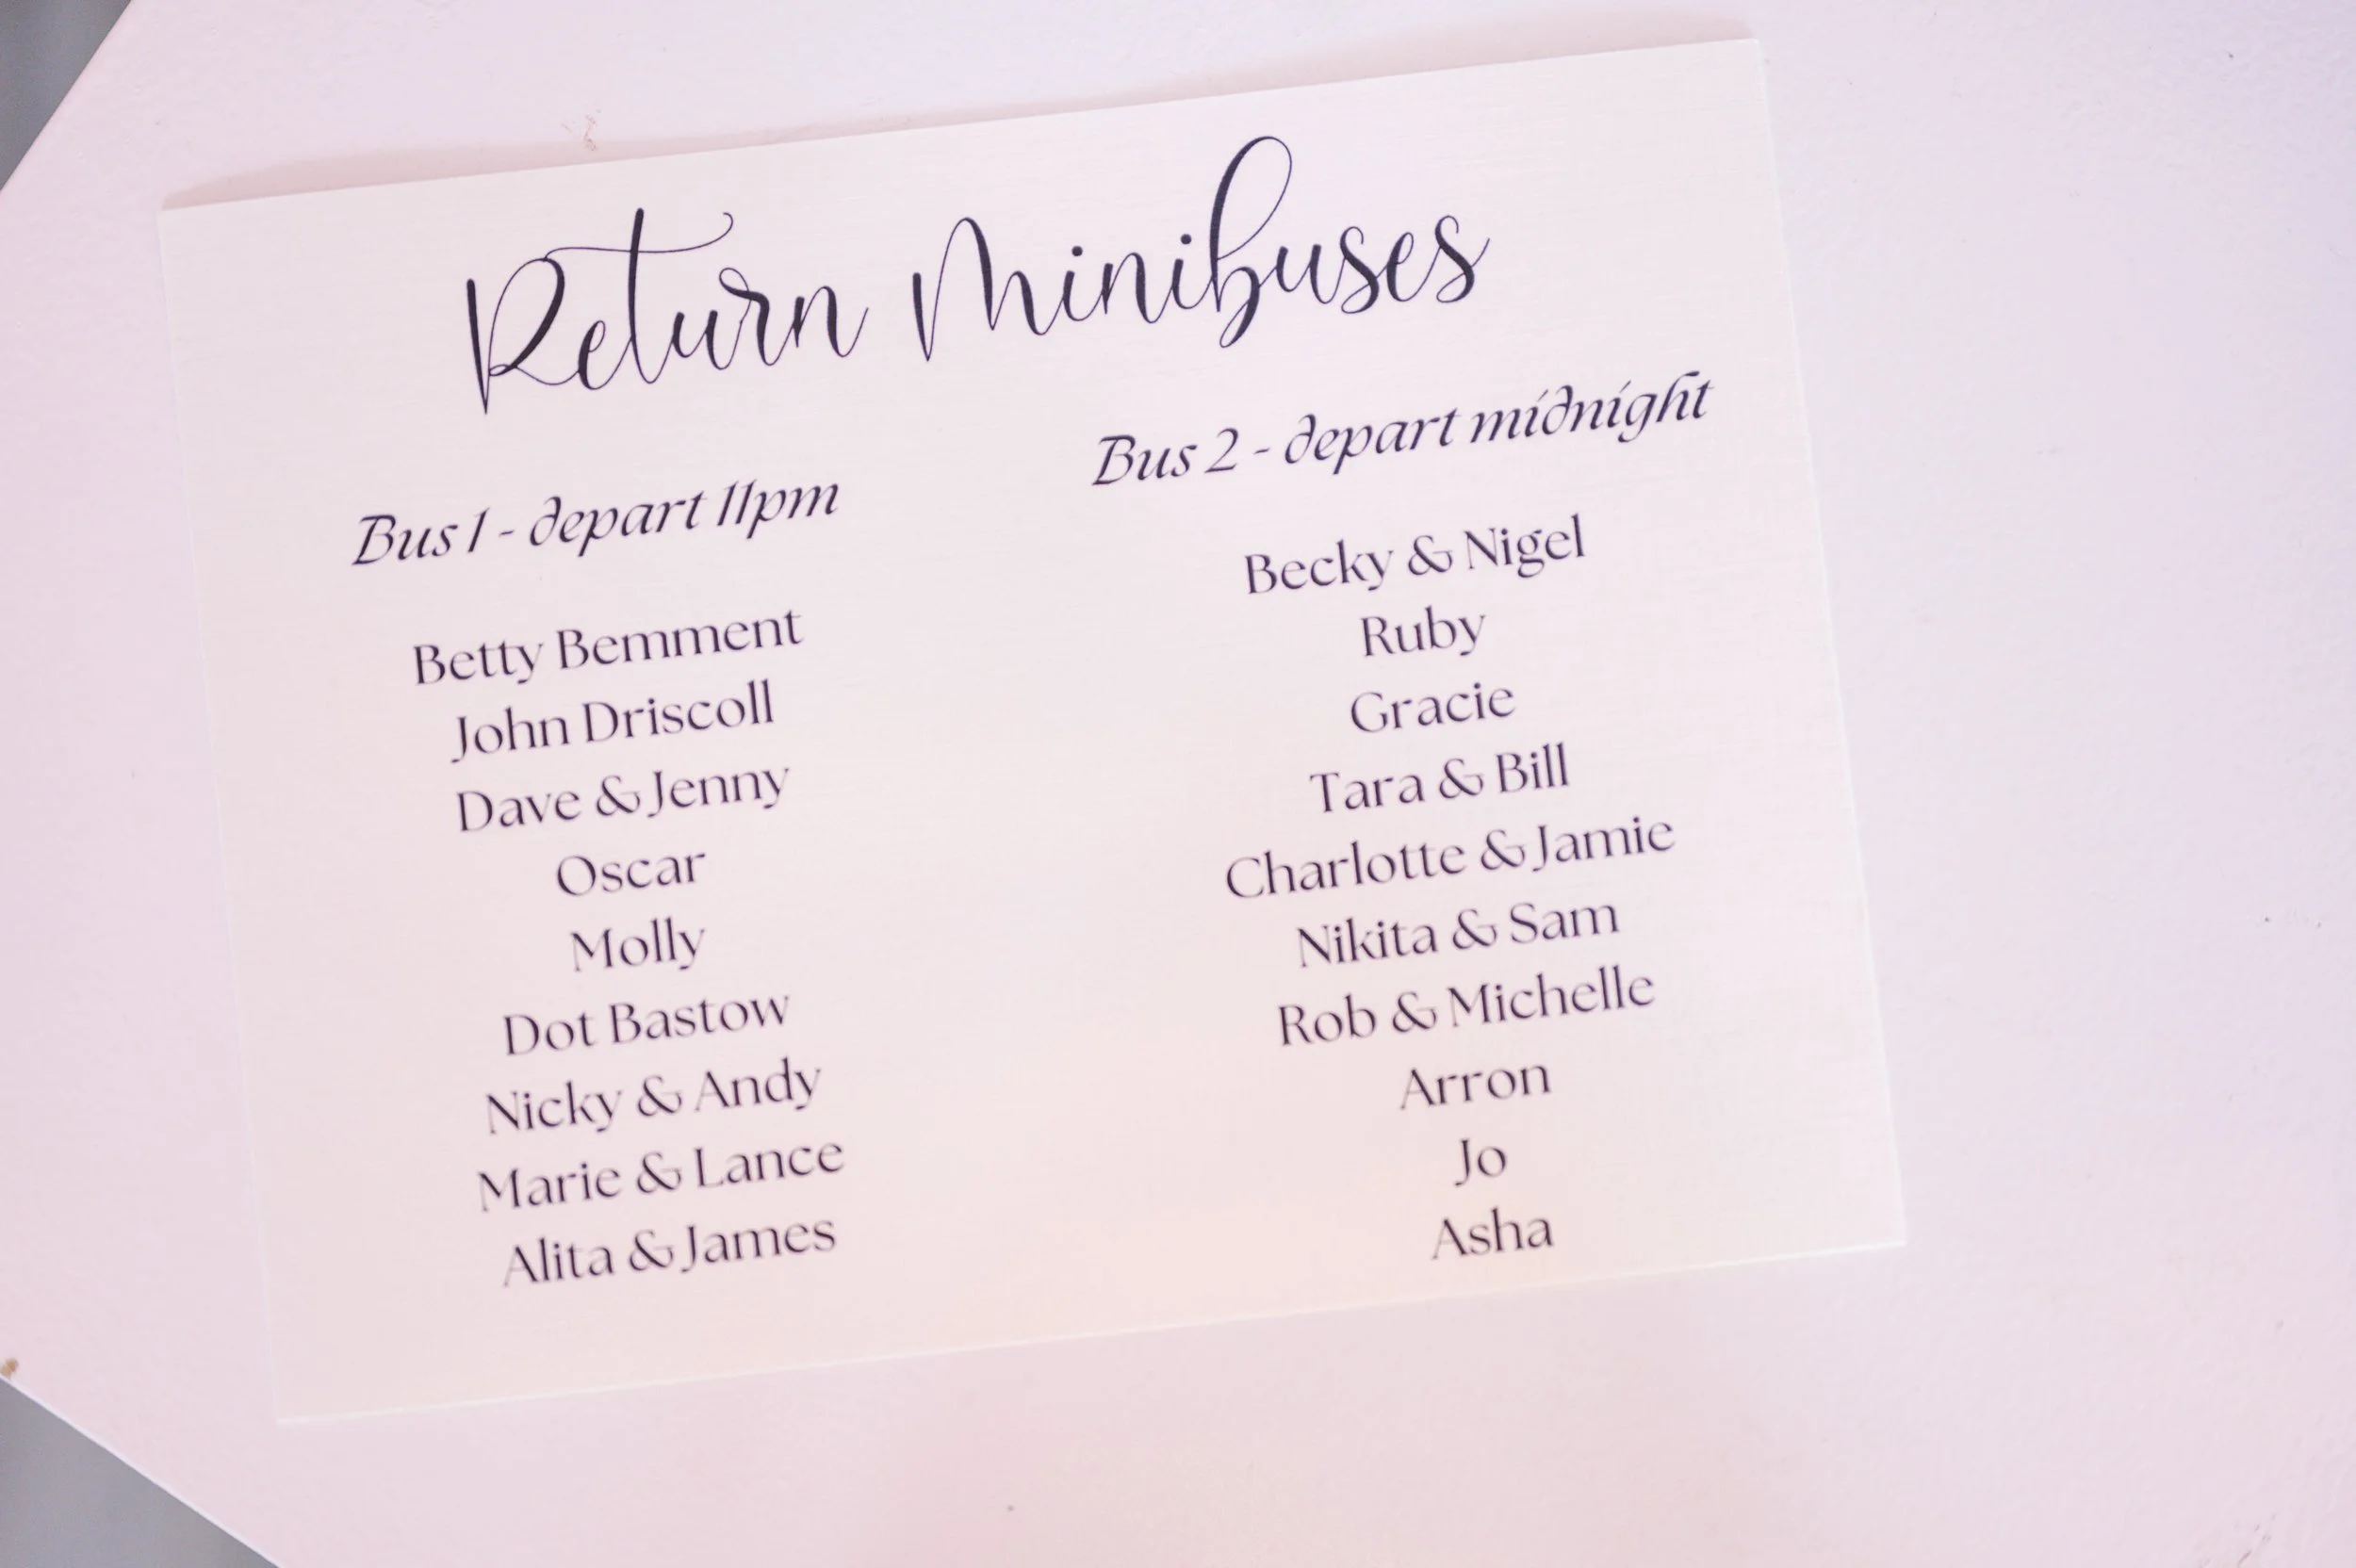 Return Minibuses
Bus 1 - depart 11pm
Betty Bemment
John Driscoll
Dave & Jenny
Oscar
Molly
Dot Bastow
Nicky & Andy
Marie & Lance
Alita & James
Bus 2 - depart midnight
Becky & Nigel
Ruby
Gracie
Tara & Bill
Charlotte & Jamie
Nikita & Sam
Rob & Michelle
Arron
Jo
Asha